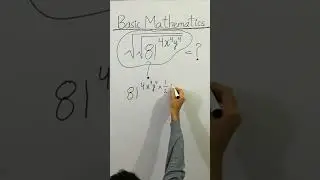 Basic Mathematics
√√81^(4x⁴y⁴) = ?
81^(4x⁴y⁴ × 1/2